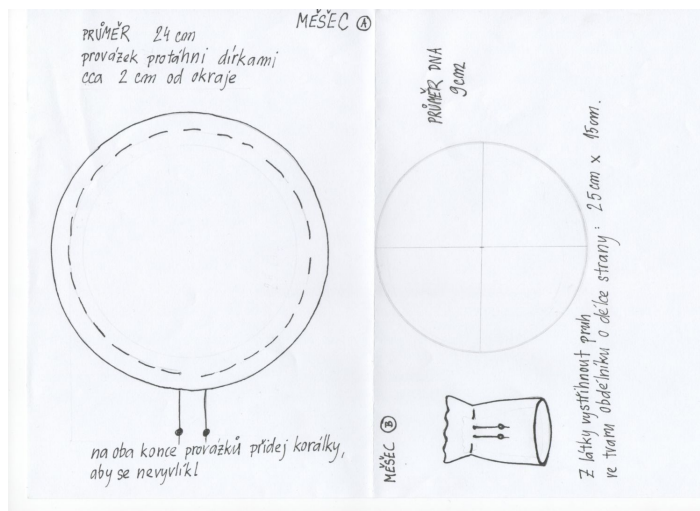 MĚŠEC Ⓐ
PRŮMĚR 24 cm
provázek protáhni dírkami
cca 2 cm od okraje
na oba konce provázků přidej korálky,
aby se nevyvlékl
MĚŠEC Ⓑ
PRŮMĚR DNA
9cm
Z látky vystřihnout pruh
ve tvaru obdélníku o délce strany: 25cm x 15cm.